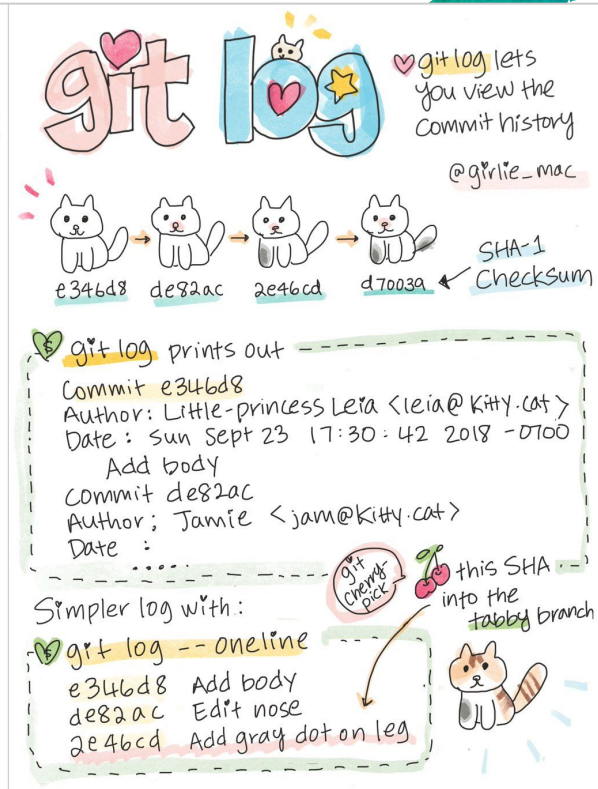 git log
git log lets
you view the
commit history
@girlie_mac
e346d8 de82ac 2e46cd d7003a
SHA-1
Checksum
$ git log prints out
Commit e346d8
Author: Little-princess Leia <leia@kitty.cat>
Date : Sun Sept 23 17:30:42 2018 -0700
Add body
commit de82ac
Author; Jamie <jam@kitty.cat>
Date :
.....
git
cherry-
pick
this SHA
into the
tabby branch
Simpler log with:
$ git log --oneline
e346d8 Add body
de82ac Edit nose
2e46cd Add gray dot on leg